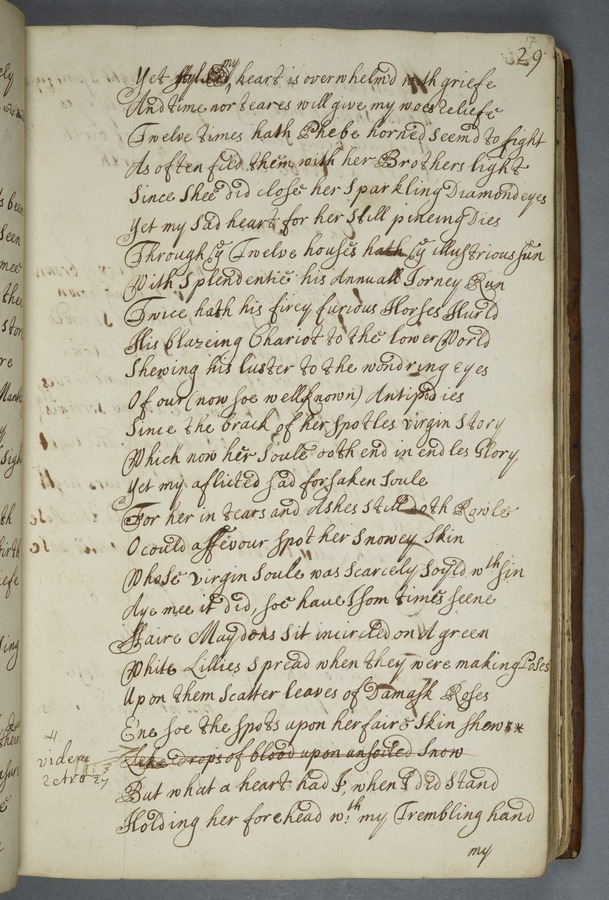 29
Yet my heart is overwhelmd with griefe
And time nor teares will give my woes reliefe
Twelve times hath Phebe horned seemd to fight
As often fild them with her Brothers light
Since Shee did close her Sparkling Diamond eyes
Yet my Sad heart for her Still pineing Dies
Through ye Twelve houses hath ye illustrious sun
With Splendentie his Annuall Iorney Run
Twice hath his firey furious Horses Hurld
His blazeing Chariot to the lower World
Shewing his luster to the wondring eyes
Of our (now soe well known) Antipodies
Since the brack of her Spotles virgin Story
Which now her Soule doth end in endles Glory
Yet my aflicted Sad forsaken Soule
For her in tears and Ashes Still doth Rowle
O could a ffevour Spot her Snowey Skin
Whose virgin Soule was Scarcely Soyld wth Sin
Aye mee it did, soe have I som times seene
ffaire Maydens Sit incircled on A green
White Lillies Spread when they were making Poses
Upon them Scatter leaves of Damask Roses
Ene soe the Spots upon her faire Skin Shew:*
Like drops of blood upon unsoiled Snow
videre
retro 27
But what a heart had I, when I did Stand
Holding her forehead wth my Trembling hand
my